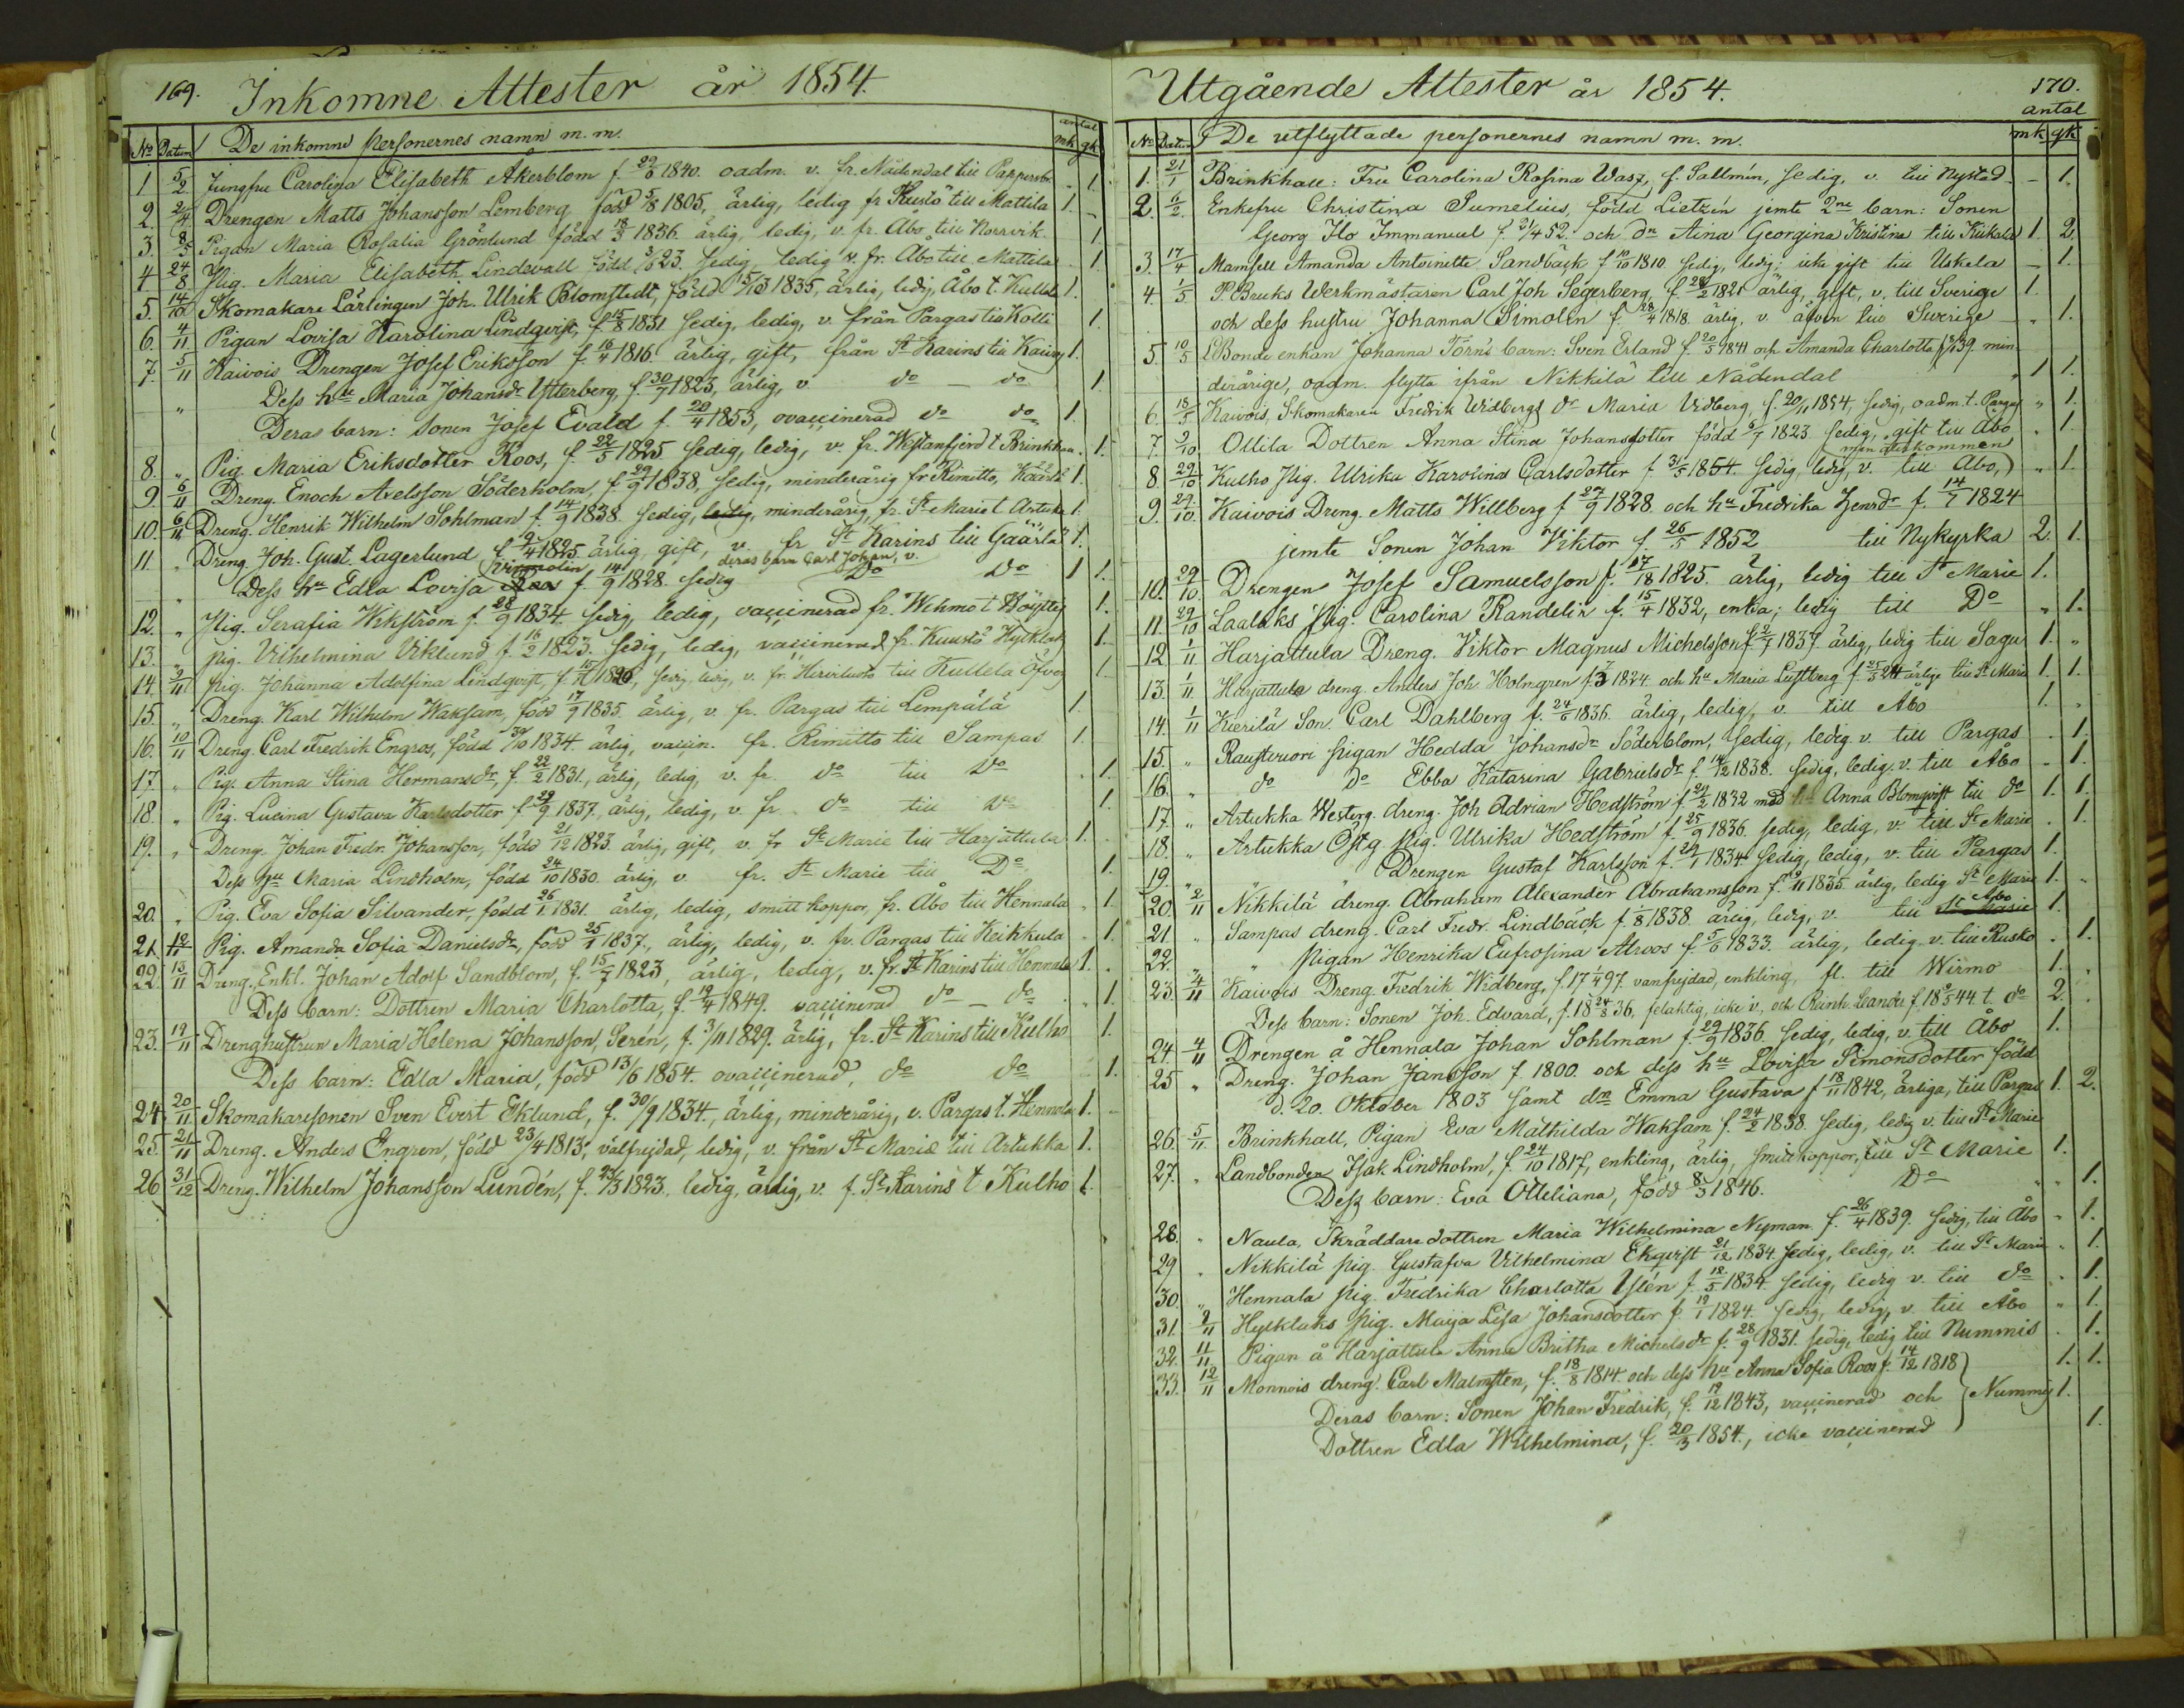 169. Inkomne Attester år 1854.
No Datum De inkomne personernes namn m. m. antal mk qk
1 5/2 Jungfru Carolina Elisabeth Åkerblom f. 1840. oadm. v. fr. Nådendal till 1.
2. 2/4 Drengen Matts Johansson Lemberg född 5/8 1805, ärlig, ledig fr Kustö till Mattila 1.
3. 8/5 Pigan Maria Rosalia Grönlund född 18/3 1836. ärlig, ledig, v. fr. Åbo till Norrvik. 1
4 24/8 Pig. Maria Elisabeth Lindevall född 23. sedig, ledig v. fr. Åbo till Mattila 1.
5. 14/10 Skomakare Lärlingen Joh. Ulrik Blomstedt, född 1835, ärlig, ledig, Åbo t. Kullela 1.
6. 4/11 Pigan Lovisa Karolina Lindqvist, f. 15/8 1831 sedig, ledig, v. från Pargas till Kolli 1.
7. 5/11 Kaivois Drengen Josef Eriksson f. 16/4 1816. ärlig, gift, från St Karins till Kaivois 1.
" Dess hu Maria Johansdr Ytterberg, f. 30/7 1825, ärlig, v. do — do 1.
Deras barn: Sonen Josef Evald f. 20/4 1853, ovaccinerad do do 1.
8. " Pig. Maria Eriksdotter Roos, f. 22/5 1825 sedig, ledig, v. fr. Westanfjerd t Brinkhall. 1.
9 6/11 Dreng. Enoch Axelsson Söderholm, f. 29/9 1838, sedig, minderårig fr Rimitto, Käärlä 1.
10. 6/11 Dreng. Henrik Wilhelm Sohlman f. 14/9 1838. sedig, ledig, minderårig, fr. St Marie t Artukka 1.
11. " Dreng. Joh. Gust. Lagerlund f. 9/4 1825. ärlig, gift, v. fr St Karins till Gäärlä 1.
deras barn Carl Johan, v.
" Dess hu Edla Lovisa f. 14/9 1828 sedig Do Do 1 1.
12. " Pig. Serafia Wikström f. 28/9 1834. sedig, ledig, vaccinerad fr. Wehmo t Höyttis 1.
13. " Pig. Vilhelmina Viklund f. 16/2 1823. sedig, ledig, vaccinerad fr. Kuustö Hylklaks 1.
14. 9/11 Pig. Johanna Adolfina Lindqvist, f. sedig, ledig, v. fr. Hirvluoto till Kullela Öfver 1.
15. " Dreng. Karl Wilhelm Waksam, född 17/9 1835. ärlig, v. fr. Pargas till Lempälä 1.
16. 10/11 Dreng. Carl Fredrik Engros, född 30/10 1834. ärlig, vaccin. fr. Rimitto till Sampas 1.
17. " Pig. Anna Stina Hermansdr, f. 22/2 1831, ärlig, ledig, v. fr. do till Do 1.
18. " Pig. Lucina Gustava Karlsdotter f. 29/9 1837. ärlig, ledig, v. fr. do till Do 1.
19. " Dreng. Johan Fredr. Johansson, född 21/12 1823. ärlig, gift, v. fr St Marie till Harjattula 1.
Dess hu Maria Lindholm, född 24/10 1830. ärlig, v. fr. St Marie till Do 1.
20. " Pig. Eva Sofia Silvander, född 26/1 1831. ärlig, ledig, smitt koppor, fr. Åbo till Hennala 1.
21. 12/11 Pig. Amanda Sofia Danielsdr, född 25/1 1837, ärlig, ledig, v. fr. Pargas till Keikkula 1.
22. 13/11 Dreng. Enkl. Johan Adolf Sandblom, f. 15/7 1823, ärlig, ledig, v. fr. St Karins till Hennala 1.
Dess barn: Dottren Maria Charlotta, f. 19/4 1849. vaccinerad do — do 1.
23. 19/11 Drenghustrun Maria Helena Johansson, Serén, f. 3/11 1829. ärlig, fr. St Karins till Kulho 1.
Dess barn: Edla Maria, född 13/6 1854. ovaccinerad, do do 1.
24. 20/11 Skomakaresonen Sven Evert Eklund, f. 30/9 1834., ärlig, minderårig, v. Pargas t. Hennala 1.
25. 21/11 Dreng. Anders Engren, född 23/4 1813, välfrejdad, ledig, v. från St Marie till Artukka 1.
26 31/12 Dreng. Wilhelm Johansson Lundén, f. 1823. ledig, ärlig, v. f. St Karins t Kulho 1.
Utgående Attester år 1854. 170.
No Datum De utflyttade personernes namn m. m. antal mk qk
1. 21/1 Brinkhall: Fru Carolina Rosina Wasz, f. Sallmén, sedig, v. till Nystad — 1.
2. 6/2 Enkefru Christina Sumelius, född Lietzén jemte 2ne barn: Sonen
Georg Ilo Immanuel f. 52. och dr Aina Georgina Kristina till Kiikala 1. 2.
3. 17/4 Mamsell Amanda Antoinette Sandbäck f. 10/10 1810. sedig, ledig, icke gift till Uskela — 1.
4. 1/5 P. Bruks Werkmästaren Carl Joh Segerberg, f. 24/2 1821 ärlig, gift, v. till Sverige 1.
och dess hustru Johanna Simolin f. 28/4 1818. ärlig, v. äfven till Sverige " 1.
5. 10/5 LBonde enkan Johanna Törns barn: Sven Erland f. 20/5 1841 och Amanda Charlotta 39. min
derårige, oadm. flytta ifrån Nikkilä till Nådendal 1 1.
6. 18/5 Kaivois, Skomakaren Fredrik Widbergs dr Maria Vidberg, f. 20/11 1854, sedig, oadm. t. Pargas " 1.
7. 9/10. Ollila Dottren Anna Stina Johansdotter född 6/7 1823 sedig, gift till Åbo " 1.
men återkommen
8. 29/10 Kulho Pig. Ulrika Karolina Carlsdotter f. 31/5 1854. sedig, ledig, v. till Åbo, " 1.
9. 29/10. Kaivois Dreng. Matts Willberg f. 27/9 1828. och hu Fredrika Henrdr f. 14/7 1824
jemte Sonen Johan Viktor f. 26/5 1852 till Nykyrka 2. 1.
10. 29/10. Drengen Josef Samuelsson f. 17/18 1825. ärlig, ledig till St Marie 1.
11. 29/10 Laalaks Pig. Carolina Randelin f. 15/4 1832, enka, ledig till Do " 1.
12 1/11 Harjattula Dreng. Viktor Magnus Michelsson f. 2/7 1837 ärlig, ledig till Sagu 1. "
13. 1/11 Harjattula dreng. Anders Joh. Holmgren f. 1824. och hu Maria Luftberg f. 25/5 24 ärlige till St Marie 1. 1.
14. 1/11 Kierilä Son. Carl Dahlberg f. 24/6 1836. ärlig, ledig, v. till Åbo 1.
15. " Raustvuori Pigan Hedda Johansdr Söderblom, sedig, ledig v. till Pargas 1.
16. " do Do Ebba Katarina Gabrielsdr f. 14/12 1838. sedig, ledig. v. till Åbo 1.
17. " Artukka Westerg. dreng. Joh Adrian Hedström f. 24/2 1832 med hu Anna Blomqvist till do 1. 1.
18. " Artukka Östg Pig. Ulrika Hedström f. 25/9 1836. sedig, ledig, v. till St Marie 1.
19. " " Drengen Gustaf Karlsson f. 22/1 1834 sedig, ledig, v. till Pargas 1.
20. 2/11 Nikkilä dreng. Abraham Alexander Abrahamsson f. 1835. ärlig, ledig St Marie 1.
21. " Sampas dreng. Carl Fredr. Lindbäck f. 1/8 1838 ärlig, ledig, v. till St Marie Åbo 1.
22. " " Pigan Henrika Eufrosina Alroos f. 5/6 1833. ärlig, ledig v. till Rusko 1.
23. 4/11 Kaivois Dreng. Fredrik Widberg, f. 17 97. vanfrejdad, enkling, fl. till Wirmo 1.
Dess barn: Sonen Joh. Edvard, f. 18 24/8 36, felaktig, icke v., och Reinh. Leander f. 18 44 t. do 2.
24. 4/11 Drengen å Hennala Johan Sohlman f. 29/9 1836. sedig, ledig, v. till Åbo 1.
25 " Dreng. Johan Jansson f. 1800. och dess hu Lovisa Simonsdotter född
d. 20. Oktober 1803 samt dm Emma Gustava f. 18/11 1842, ärliga, till Pargas 1. 2.
26. 5/11. Brinkhall, Pigan Eva Mathilda Waksam f. 24/2 1838. sedig, ledig v. till St Marie
27. " Landbonden Isak Lindholm, f. 24/10 1817, enkling, ärlig, smittkoppor, till St Marie 1.
Dess barn: Eva Otteliana, född 8/3 1846. Do 1.
28. " Naula, Skräddare dottren Maria Wilhelmina Nyman. f. 26/4 1839. sedig, till Åbo 1.
29 " Nikkilä Pig. Gustafva Vilhelmina Ekqvist 21/12 1834. sedig, ledig, v. till St Marie 1.
30. " Hennala Pig. Fredrika Charlotta Yfén f. 18/5 1834 sedig, ledig v. till do 1.
31. 9/11 Hylklaks Pig. Maija Lisa Johansdotter f. 19/1 1824. sedig, ledig, v. till Åbo 1.
32. 11/11. Pigan å Harjattula Anna Britha Michelsdr f. 28/9 1831. sedig, ledig till Nummis 1.
33. 12/11 Monnois dreng. Carl Malmsten, f. 18/8 1814 och dess hu Anna Sofia Roos f. 14/12 1818 1. 1.
Deras barn: Sonen Johan Fredrik, f. 19/12 1843, vaccinerad och Nummis 1.
Dottren Edla Wilhelmina, f. 20/3 1854., icke vaccinerad 1.